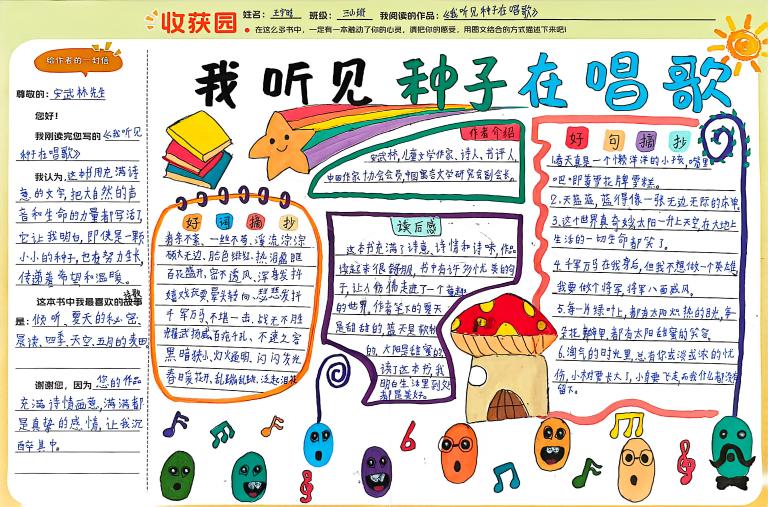 收获园
姓名：
班级：三山班
我阅读的作品：《我听见种子在唱歌》
在这么多书中，一定有一本触动了你的心灵，请把你的感受，用图文结合的方式描述下来吧！
给作者的一封信
尊敬的：宋武林先生
您好！
我刚读完您写的《我听见
种子在唱歌》
我认为，这本书充满诗
意的文字，把大自然的声
音和生命的力量都写活了，
它让我明白，即使是一颗
小小的种子，也在努力生长，
传递着希望和温暖。
这本书中我最喜欢的故事
诗歌
是：倾听、夏天的秘密、
晨读、四季、天空、五月的麦田
谢谢您，因为 您的作品
充满诗情画意，满满都
是真挚的感情，让我沉
醉其中。
我听见种子在唱歌
作者介绍
宋武林，儿童文学作家、诗人、书评人，
中国作家协会会员，中国寓言文学研究会副会长。
好词摘抄
着奈不案、一丝不苟、溪流淙淙
硕大无边、脸色绯红、热泪盈眶
百花盛开、密不透风、浑身发抖
嬉戏玩耍、晕头转向、瑟瑟发抖
千军万马、不堪一击、战无不胜
耀武扬威、百病千乱、不速之客
黑暗狭小、灯火通明、闪闪发光
春日暖花开、乱蹦乱跳、泛起泪花
读后感
这本书充满了诗意、诗情和诗味，作品
读起来很舒服，书中有许多优美的句
子，让人仿佛走进了一个童趣
的世界，作者笔下的夏天
是甜甜的，蓝天是软软
的，太阳是甜蜜的，
读了这本书，我
明白生活里到处
都是美好。
好句摘抄
1.春天真是一个懒洋洋的小孩，嘴里
吧唧着雪花牌雪糕。
2.天蓝蓝，蓝得像一张无边无际的床单。
3.这个世界真奇妙，太阳一升上天空，在大地上
生活的一切生命都笑了。
4.千军万马在我身后，但我不想做一个英雄，
我要做个将军，将军八面威风。
5.每一片绿叶上，都有太阳炽热的目光，每一
朵花瓣里，都有太阳甜蜜的笑容。
6.淘气的时光里，总有你或淡或浓的忧
伤，小树苗长大了，小鸟要飞走，而我什么都没有
留下。